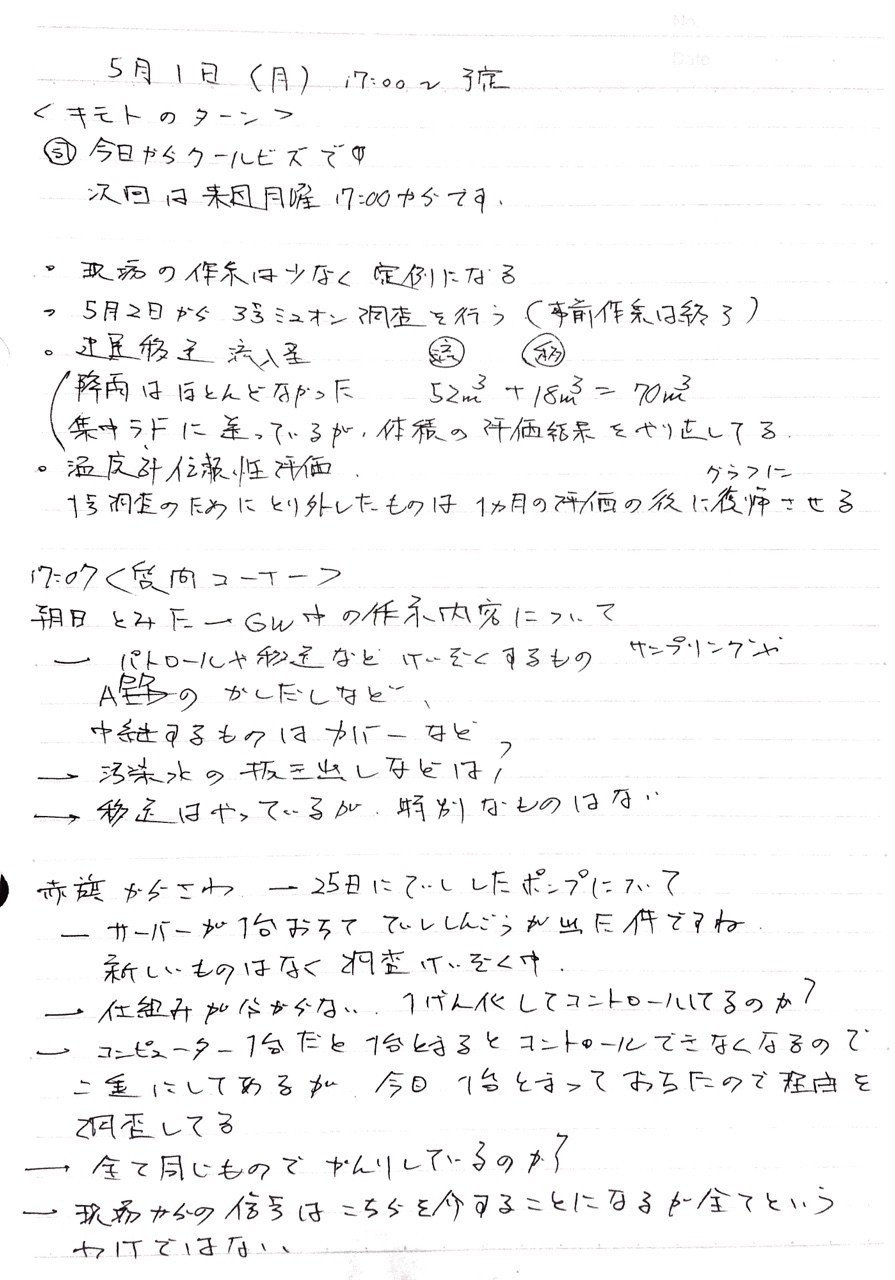 No.
Date
5月1日(月) 17:00〜
<キモトのターン>
今日からクールビズです
次回は来週月曜17:00からです.
・現場の作業は少なく定例になる
・5月2日から3号ミュオン調査を行う(事前作業は終了)
・建屋移送 流入量 流 移
降雨はほとんどなかった 52m³+18m³=70m³
集中ラドに送っているが、体積の評価結果をやり直してる.
・温度計信頼性評価.
グラフに
1号調査のためにとり外したものは1カ月の評価の後に復帰させる
17:07<質問コーナー>
朝日 とみた→GW中の作業内容について
→ パトロールや移送など けいぞくするもの サンプリングや
の かしだしなど、
中継するものはカバーなど
→ 汚染水の抜き出しなどは?
→ 移送はやっているが、特別なものはない
赤旗 からさわ →25日にていししたポンプについて
→ サーバーが1台おちて ていししんごうが出た件ですね.
新しいものはなく調査けいぞく中.
→ 仕組みが分からない. 1げん化してコントロールしてるのか?
→ コンピューター1台だと1台とまるとコントロールできなくなるので
二重にしてあるが、今回1台とまっておちたので理由を
調査してる
→ 全て同じものでかんりしているのか?
→ 現場からの信号はこちらを介することになるが全てという
わけではない.